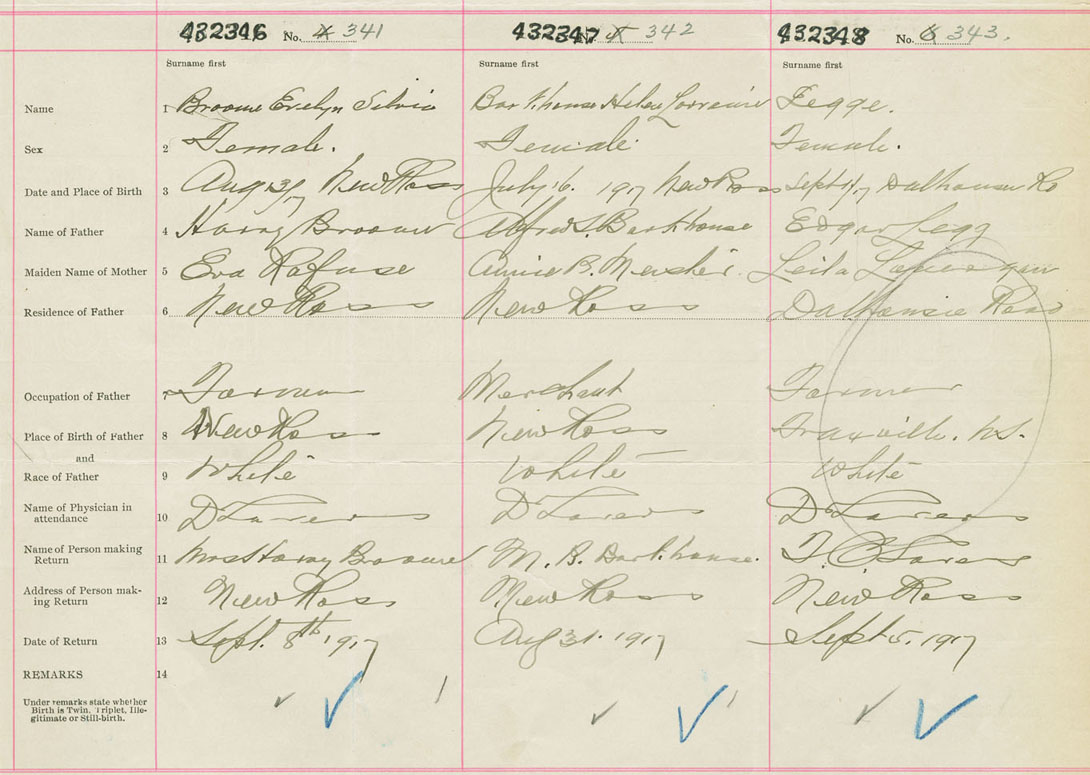 432346 No. 4 341 432347 No. 5 342 432348 No. 6 343.
Surname first Surname first Surname first
Name 1 Broome Evelyn Silvia Barkhouse Helen Lorraine Legge.
Sex 2 Female. Female Female.
Date and Place of Birth 3 Aug 17 New Ross July 16. 1917 New Ross Sept 1/17 Dalhousie Rd
Name of Father 4 Harry Broome Alfred S. Barkhouse Edgar Legg
Maiden Name of Mother 5 Eva Rafuse Annie B. Meisner. Leila
Residence of Father 6 New Ross New Ross Dalhousie Road
Occupation of Father 7 Farmer Merchant Farmer
Place of Birth of Father 8 New Ross New Ross N.S.
and
Race of Father 9 White White White
Name of Physician in
attendance 10 D Lavers D Lavers D Lavers
Name of Person making
Return 11 Mrs Harry Broome M. B. Barkhouse. Lavers
Address of Person mak-
ing Return 12 New Ross New Ross New Ross
Date of Return 13 Sept. 8th 1917 Aug 31. 1917 Sept 5. 1917
REMARKS 14
Under remarks state whether
Birth is Twin, Triplet, Ille-
gitimate or Still-birth.